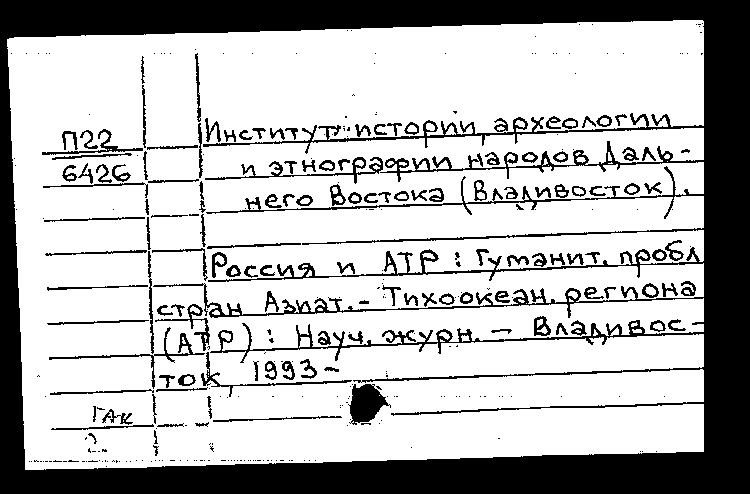 П22
6426
Институт истории, археологии
и этнографии народов Даль-
него Востока (Владивосток).
Россия и АТР : Гуманит. пробл
стран Азиат.- Тихоокеан. региона
(АТР) : Науч. журн. - Владивос-
ток, 1993-
ГАК
2.